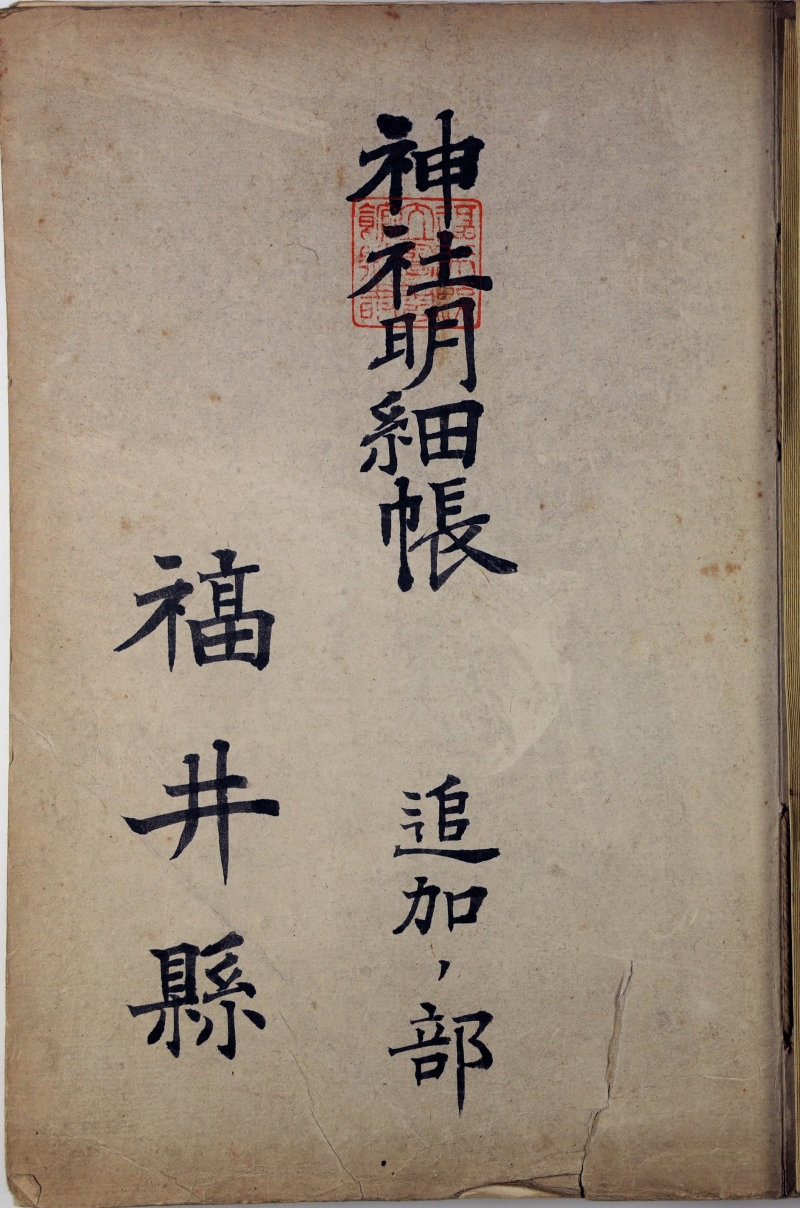 神社明細帳
追加ノ部
福井縣